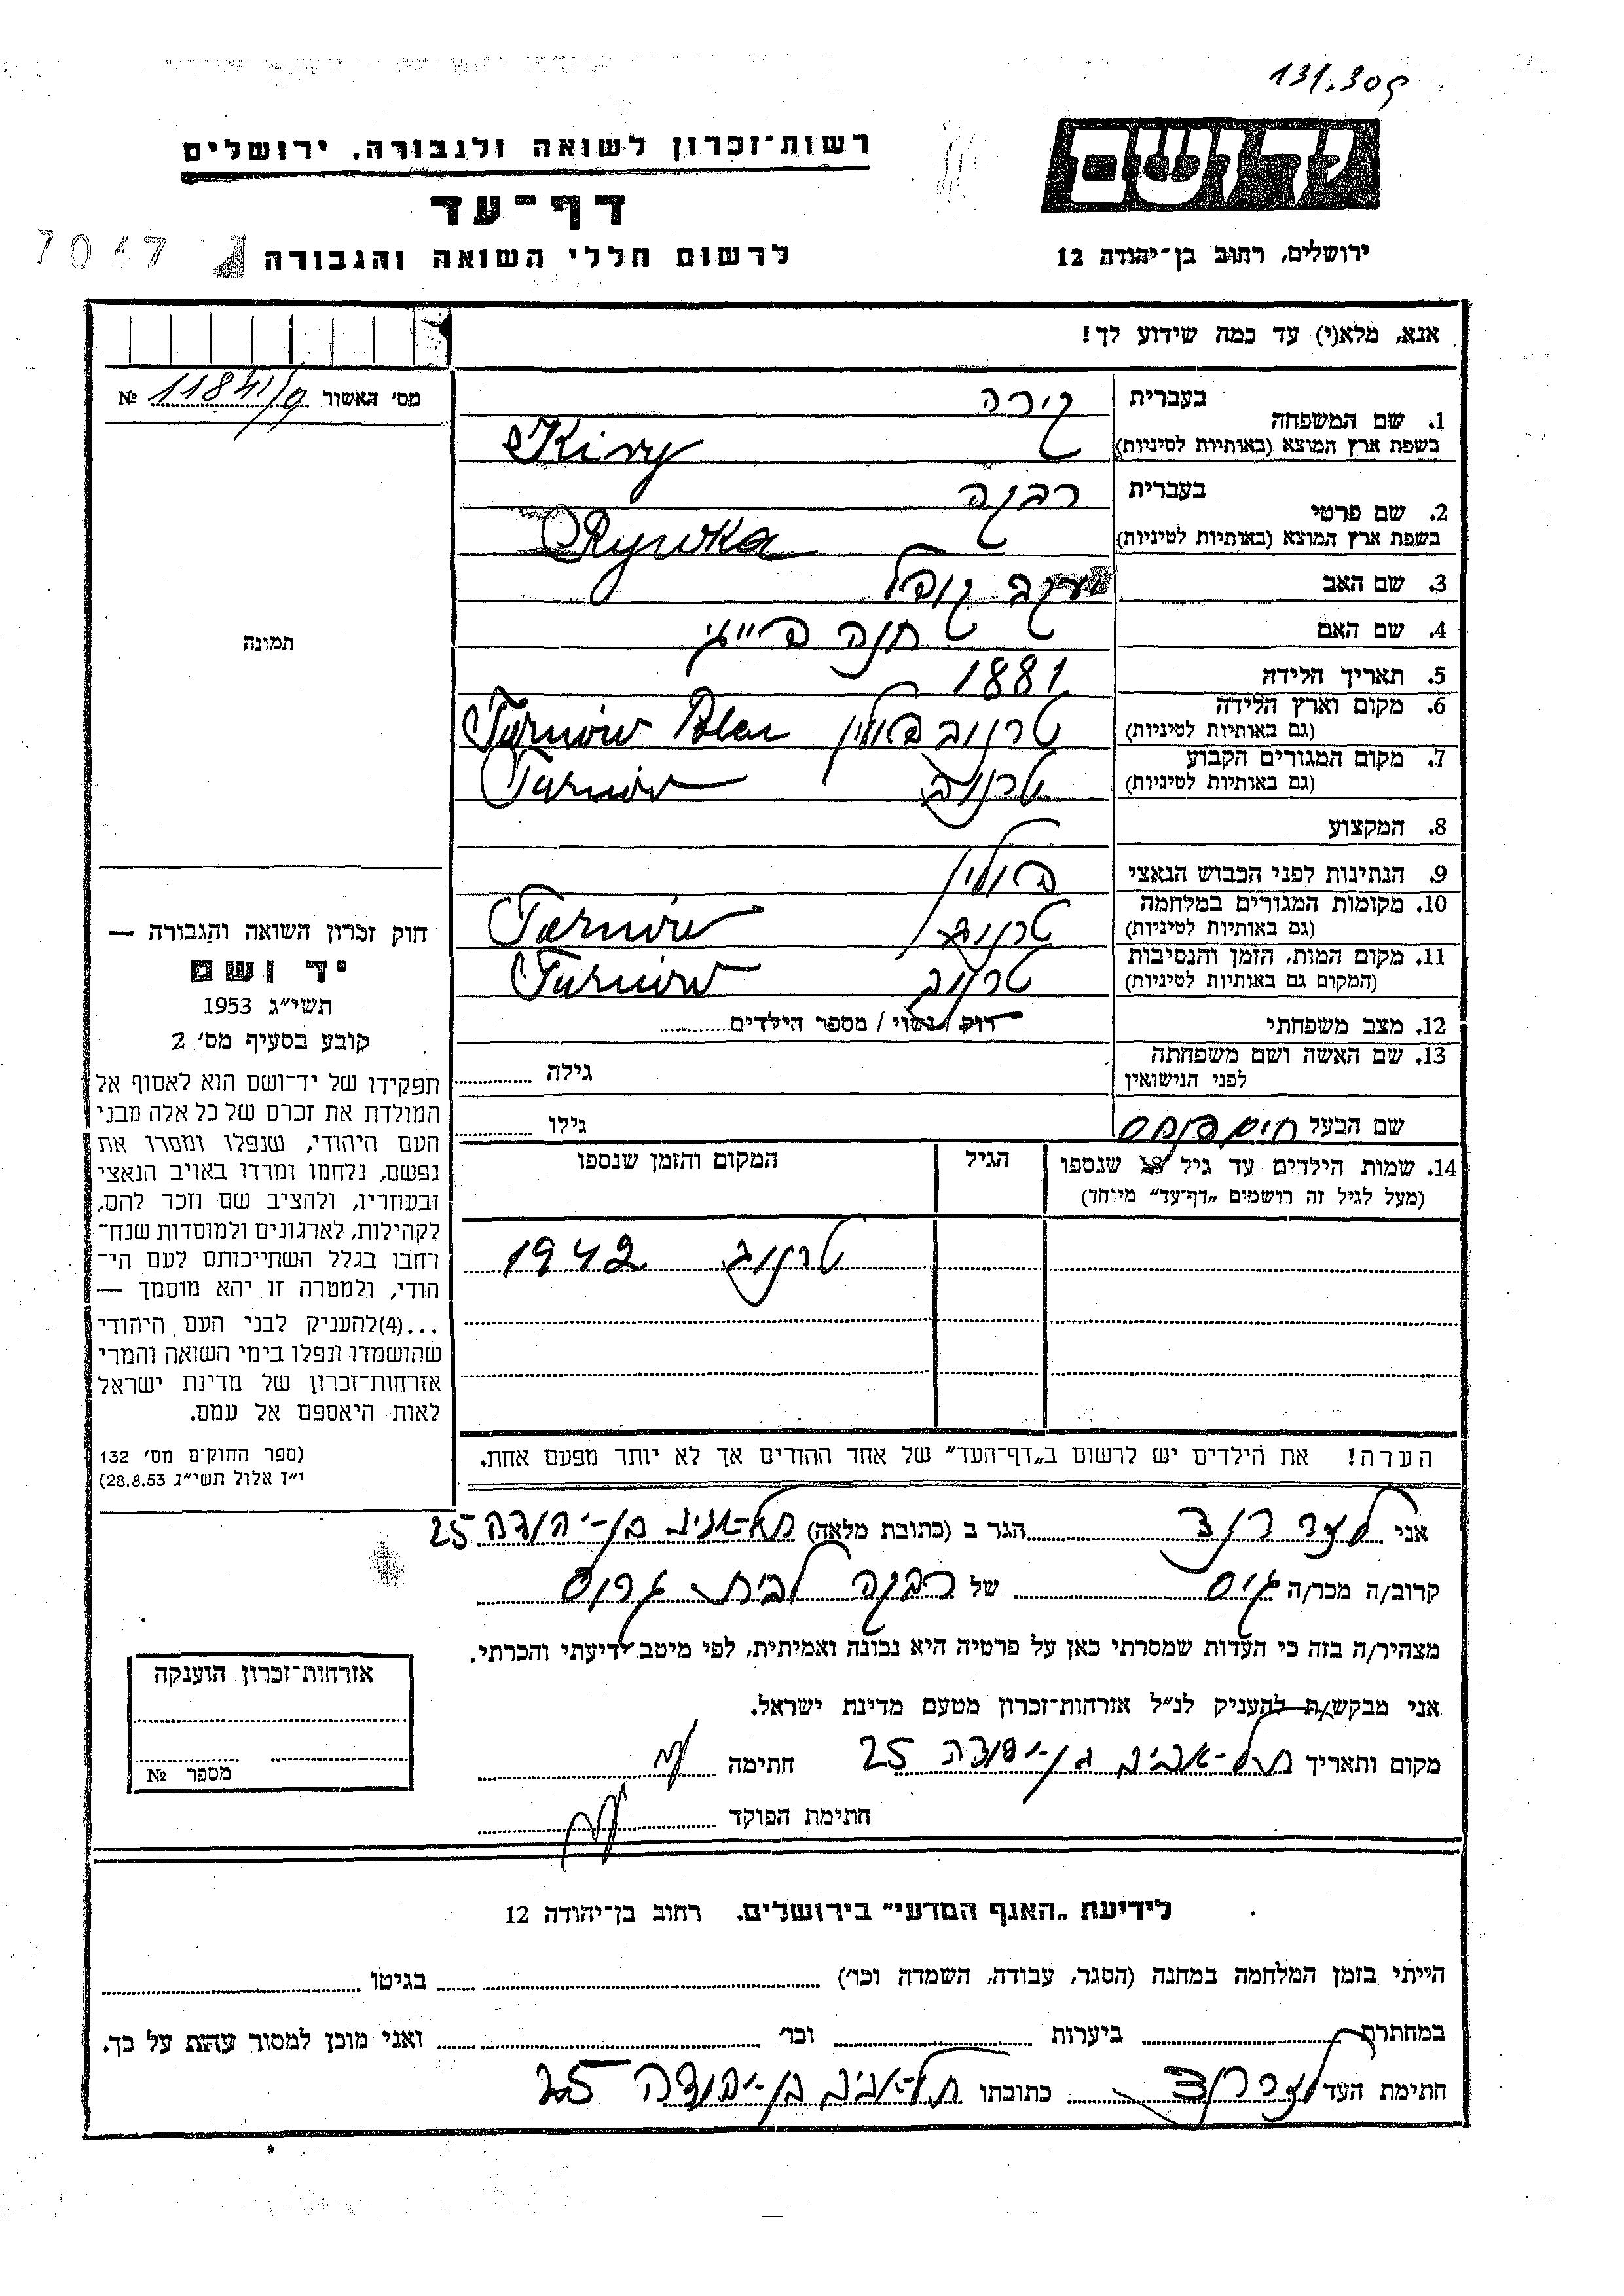 131.309
רשות־זכרון לשואה ולגבורה, ירושלים
יד ושם
דף־עד
לרשום חללי השואה והגבורה
ירושלים, רחוב בן־יהודה 12
7067
אנא, מלא(י) עד כמה שידוע לך!
מס׳ האשור № 11841/9
1. שם המשפחה בעברית קירה
בשפת ארץ המוצא (באותיות לטיניות) Kiry
2. שם פרטי בעברית רבקה
בשפת ארץ המוצא (באותיות לטיניות) Rywka
3. שם האב יעקב קופל
4. שם האם חנה פייגי
תמונה
5. תאריך הלידה 1881
6. מקום וארץ הלידה (גם באותיות לטיניות) טרנוב פולין Tarnów Polen
7. מקום המגורים הקבוע (גם באותיות לטיניות) טרנוב Tarnów
8. המקצוע
9. הנתינות לפני הכבוש הנאצי פולין
10. מקומות המגורים במלחמה (גם באותיות לטיניות) טרנוב Tarnów
11. מקום המות, הזמן והנסיבות (המקום גם באותיות לטיניות) טרנוב Tarnów
12. מצב משפחתי רוק / נשוי / מספר הילדים
13. שם האשה ושם משפחתה לפני הנישואין גילה
שם הבעל חיים פנחס גילו
14. שמות הילדים עד גיל 18 שנספו הגיל המקום והזמן שנספו
(מעל לגיל זה רושמים „דף־עד״ מיוחד)
טרנוב 1942
הערה! את הילדים יש לרשום ב„דף־העד״ של אחד ההורים אך לא יותר מפעם אחת.
חוק זכרון השואה והגבורה —
יד ושם
תשי״ג 1953
קובע בסעיף מס׳ 2
תפקידו של יד־ושם הוא לאסוף אל
המולדת את זכרם של כל אלה מבני
העם היהודי, שנפלו ומסרו את
נפשם, נלחמו ומרדו באויב הנאצי
ובעוזריו, ולהציב שם וזכר להם,
לקהילות, לארגונים ולמוסדות שנח־
רחבו בגלל השתייכותם לעם הי־
הודי, ולמטרה זו יהא מוסמך —
...(4)להעניק לבני העם היהודי
שהושמדו ונפלו בימי השואה והמרי
אזרחות־זכרון של מדינת ישראל
לאות היאספם אל עמם.
(ספר החוקים מס׳ 132
י״ז אלול תשי״ג 28.8.53)
אני לצר רנד הגר ב (כתובת מלאה) תל־אביב בן־יהודה 25
קרוב/ה מכר/ה גיס של רבקה לבית גרוס
מצהיר/ה בזה כי העדות שמסרתי כאן על פרטיה היא נכונה ואמיתית, לפי מיטב ידיעתי והכרתי.
אני מבקש/ת להעניק לנ״ל אזרחות־זכרון מטעם מדינת ישראל.
מקום ותאריך תל־אביב בן־יהודה 25 חתימה
חתימת הפוקד
אזרחות־זכרון הוענקה
מספר №
לידיעת „האגף המדעי״ בירושלים, רחוב בן־יהודה 12
הייתי בזמן המלחמה במחנה (הסגר, עבודה, השמדה וכו׳) בגיטו
במחתרת ביערות וכו׳ ואני מוכן למסור עדות על כך.
חתימת העד לצר רנד כתובתו תל־אביב בן־יהודה 25